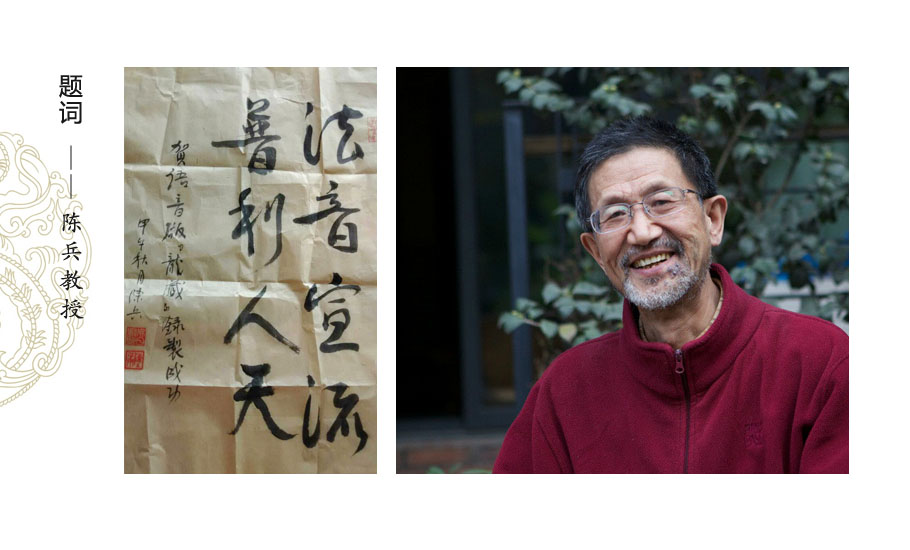 题词
——陈兵教授
法音宣流
普利人天
贺语音版《龙藏》录製成功
甲午秋月陈兵